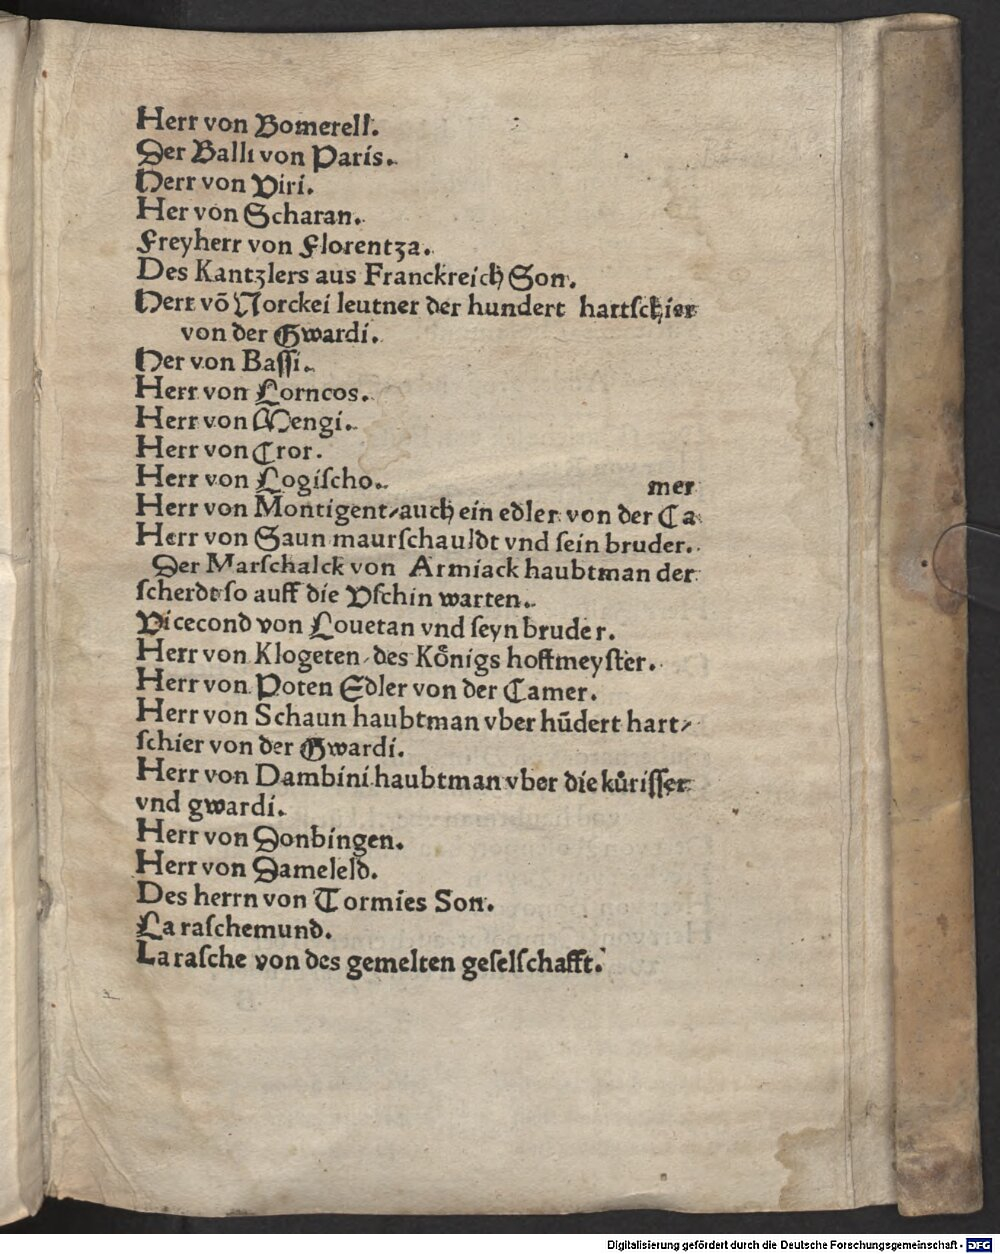 Herr von Bomerell.
Der Balli von Paris.
Herr von Viri.
Her von Scharan.
Freyherr von Florentza.
Des Kantzlers aus Franckreich Son.
Herr võ Norckei leutner der hundert hartschier
von der Gwardi.
Her von Bassi.
Herr von Lorncos.
Herr von Mengi.
Herr von Cror.
Herr von Logischo.
mer
Herr von Montigent/auch ein edler von der Ca
Herr von Saun maurschauldt vnd sein bruder.
Der Marschalck von Armiack haubtman der
scherdt so auff die Vschin warten.
Vicecond von Louetan vnd seyn bruder.
Herr von Klogeten/des Koͤnigs hoffmeyster.
Herr von Poten Edler von der Camer.
Herr von Schaun haubtman vber hūdert hart/
schier von der Gwardi.
Herr von Dambini haubtman vber die kuͤrisser
vnd gwardi.
Herr von Donbingen.
Herr von Dameleld.
Des herrn von Tormies Son.
La raschemund.
La rasche von des gemelten geselschafft.
Digitalisierung gefördert durch die Deutsche Forschungsgemeinschaft - DFG